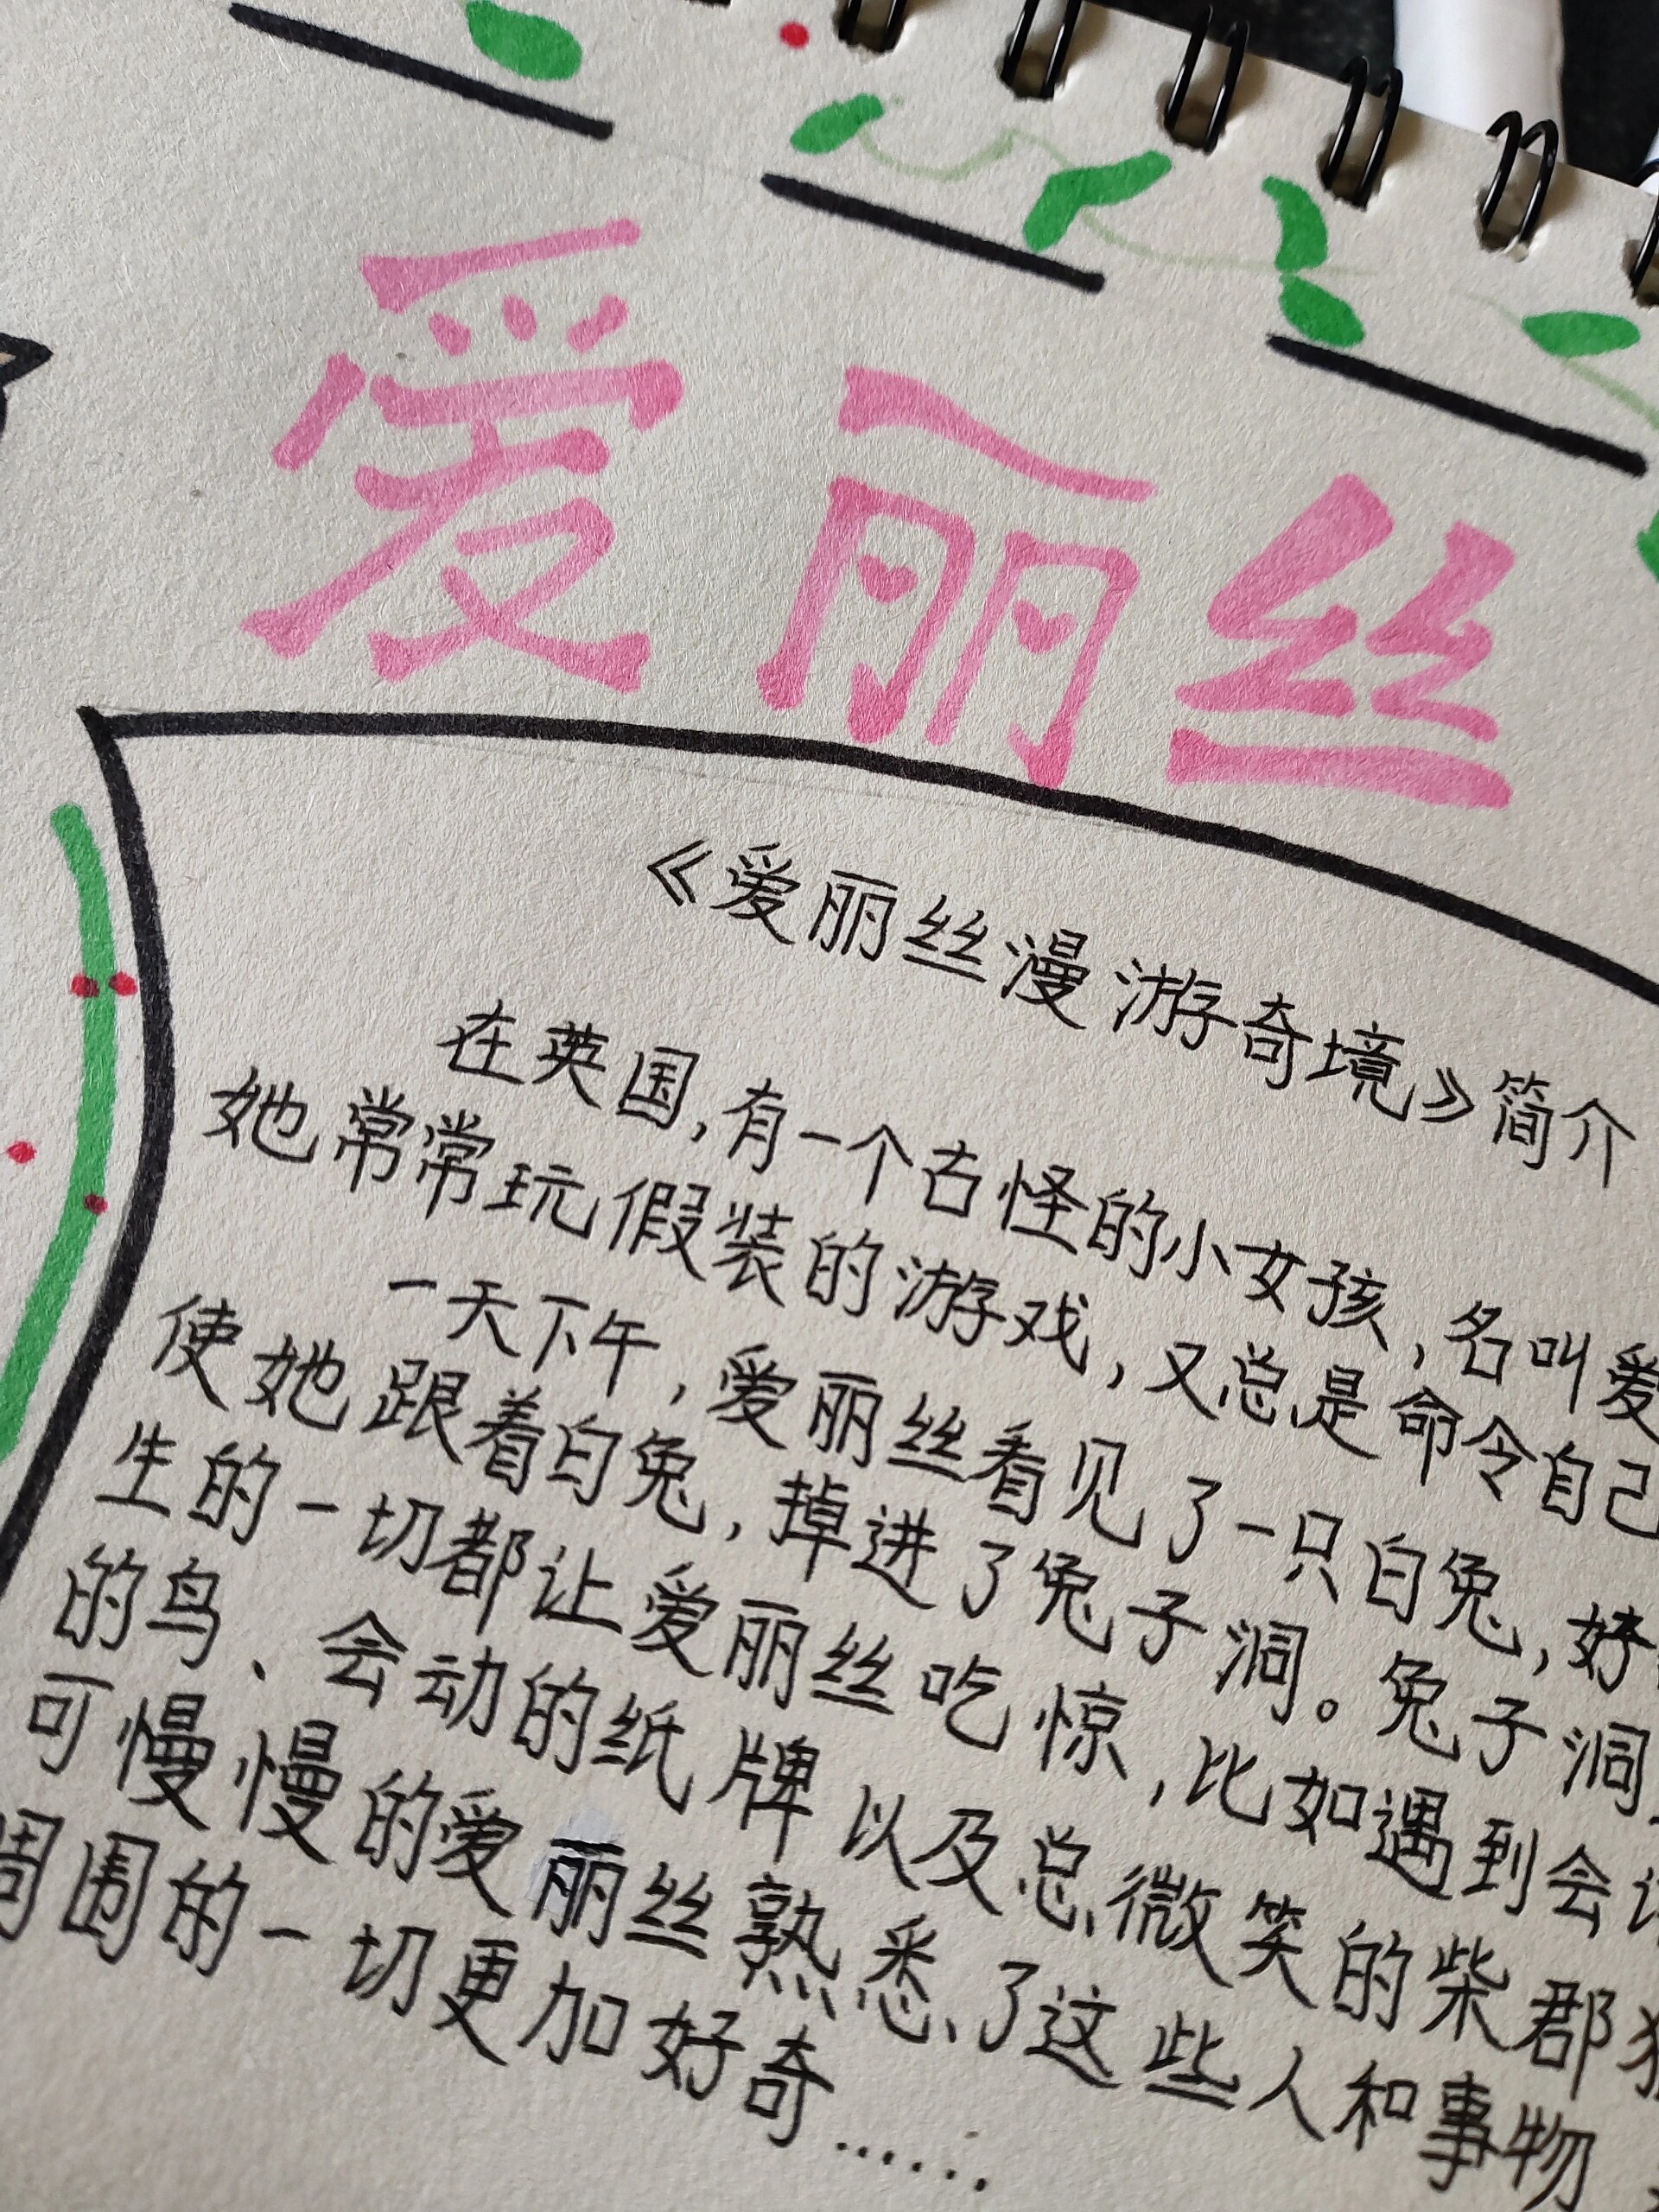 爱丽丝
《爱丽丝漫游奇境》简介
在英国,有一个古怪的小女孩,名叫爱
她常常玩假装的游戏,又总是命令自己
一天下午,爱丽丝看见了一只白兔,好
使她跟着白兔,掉进了兔子洞。兔子洞
生的一切都让爱丽丝吃惊,比如遇到会
的鸟、会动的纸牌以及总微笑的柴郡
可慢慢的爱丽丝熟悉了这些人和事物
周围的一切更加好奇……